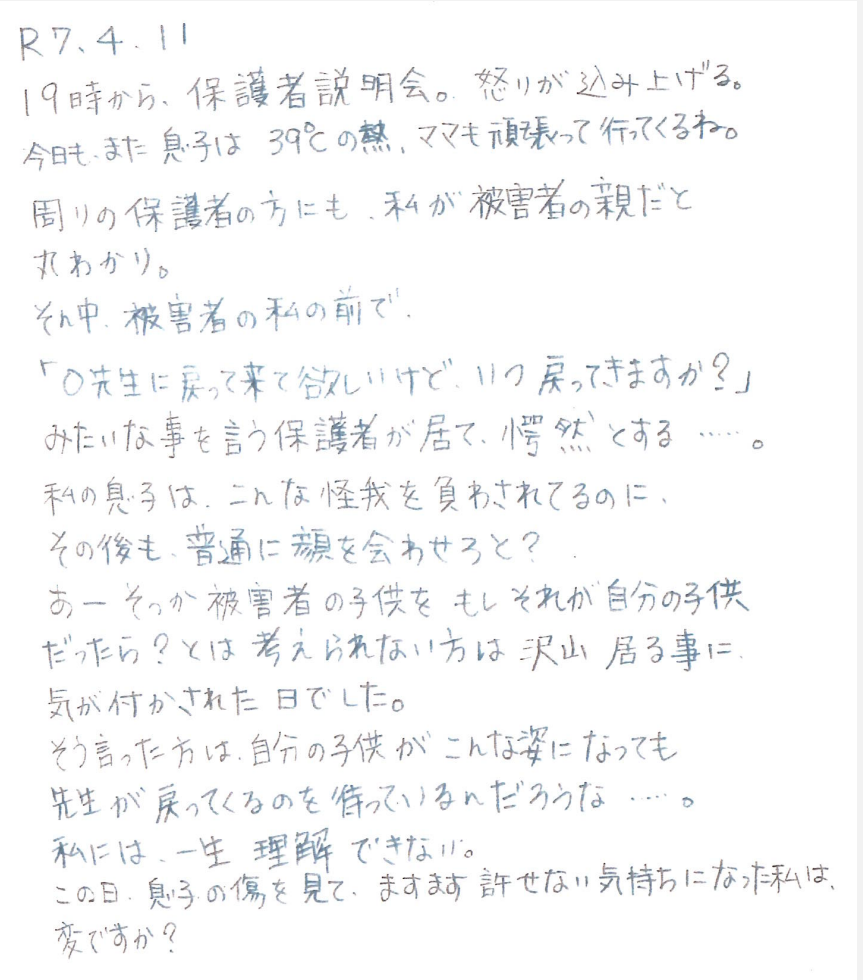 R7.4.11
19時から、保護者説明会。怒りが込み上げる。
今日も、また息子は 39℃の熱、ママも頑張って行ってくるね。
周りの保護者の方にも、私が被害者の親だと
丸わかり。
そん中、被害者の私の前で、
「〇先生に戻って来て欲しいけど、いつ戻ってきますか?」
みたいな事を言う保護者が居て、愕然とする……。
私の息子は、こんな怪我を負わされてるのに、
その後も、普通に顔を会わせろと?
あーそっか被害者の子供をもしそれが自分の子供
だったら?とは考えられない方は沢山居る事に、
気が付かされた日でした。
そう言った方は、自分の子供がこんな姿になっても
先生が戻ってくるのを待っているんだろうな……。
私には、一生理解できない。
この日、息子の傷を見て、ますます許せない気持ちになった私は、
変ですか?